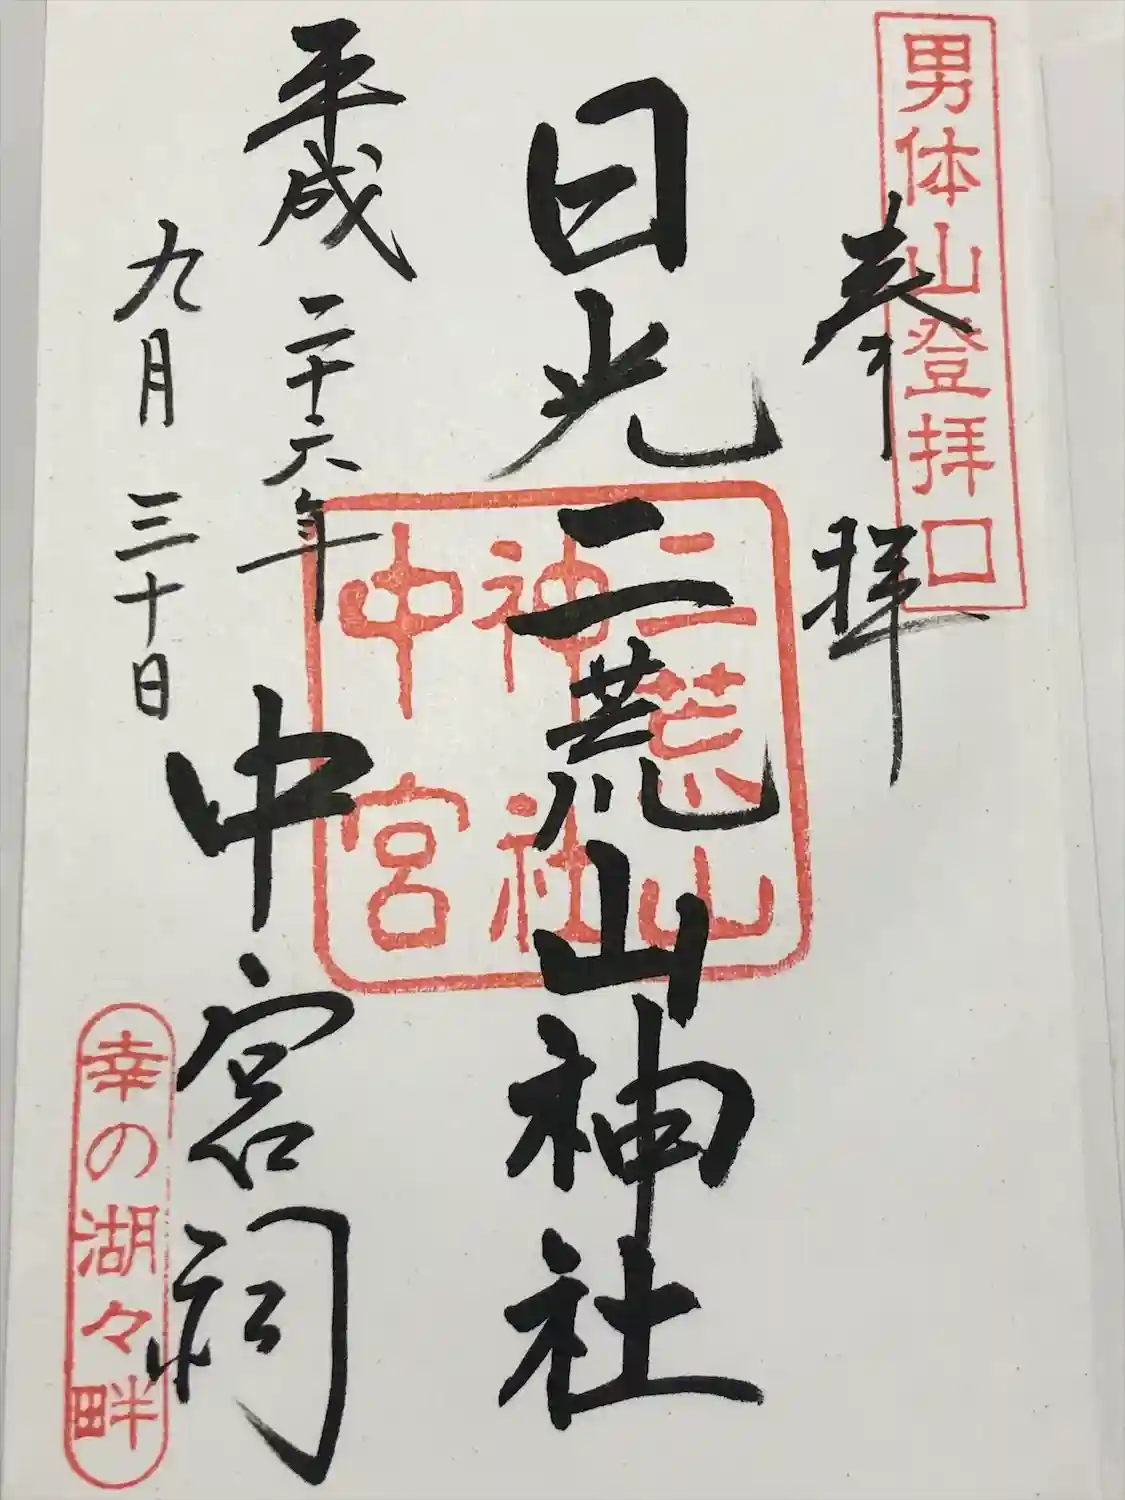 男体山登拝口
奉拝
日光二荒山神社
二荒山
神社
中宮
平成二十六年
九月三十日
中宮祠
幸の湖々畔